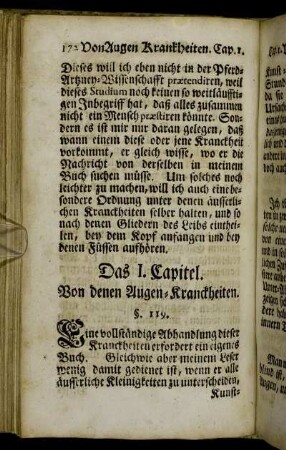 172 Von Augen Kranckheiten. Cap. 1.
Dieses will ich eben nicht in der Pferd-
Artzney-Wissenschafft prætendiren, weil
dieses Studium noch keinen so weitläufftig-
en Inbegriff hat, daß alles zusammen
nicht ein Mensch præstiren könnte. Son-
dern es ist mir nur daran gelegen, daß
wann einem diese oder jene Kranckheit
vorkommt, er gleich wisse, wo er die
Nachricht von derselben in meinem
Buch suchen müsse. Um solches noch
leichter zu machen, will ich auch eine be-
sondere Ordnung unter denen äusserli-
chen Kranckheiten selber halten, und so
nach denen Gliedern des Leibs einthei-
len, bey dem Kopf anfangen und bey
denen Füssen aufhören.
Das I. Capitel.
Von denen Augen-Kranckheiten.
§. 119.
Eine vollständige Abhandlung dieser
Kranckheiten erfordert ein eigenes
Buch. Gleichwie aber meinem Leser
wenig damit gedienet ist, wenn er alle
äusserliche Kleinigkeiten zu unterscheiden,
Kunst-